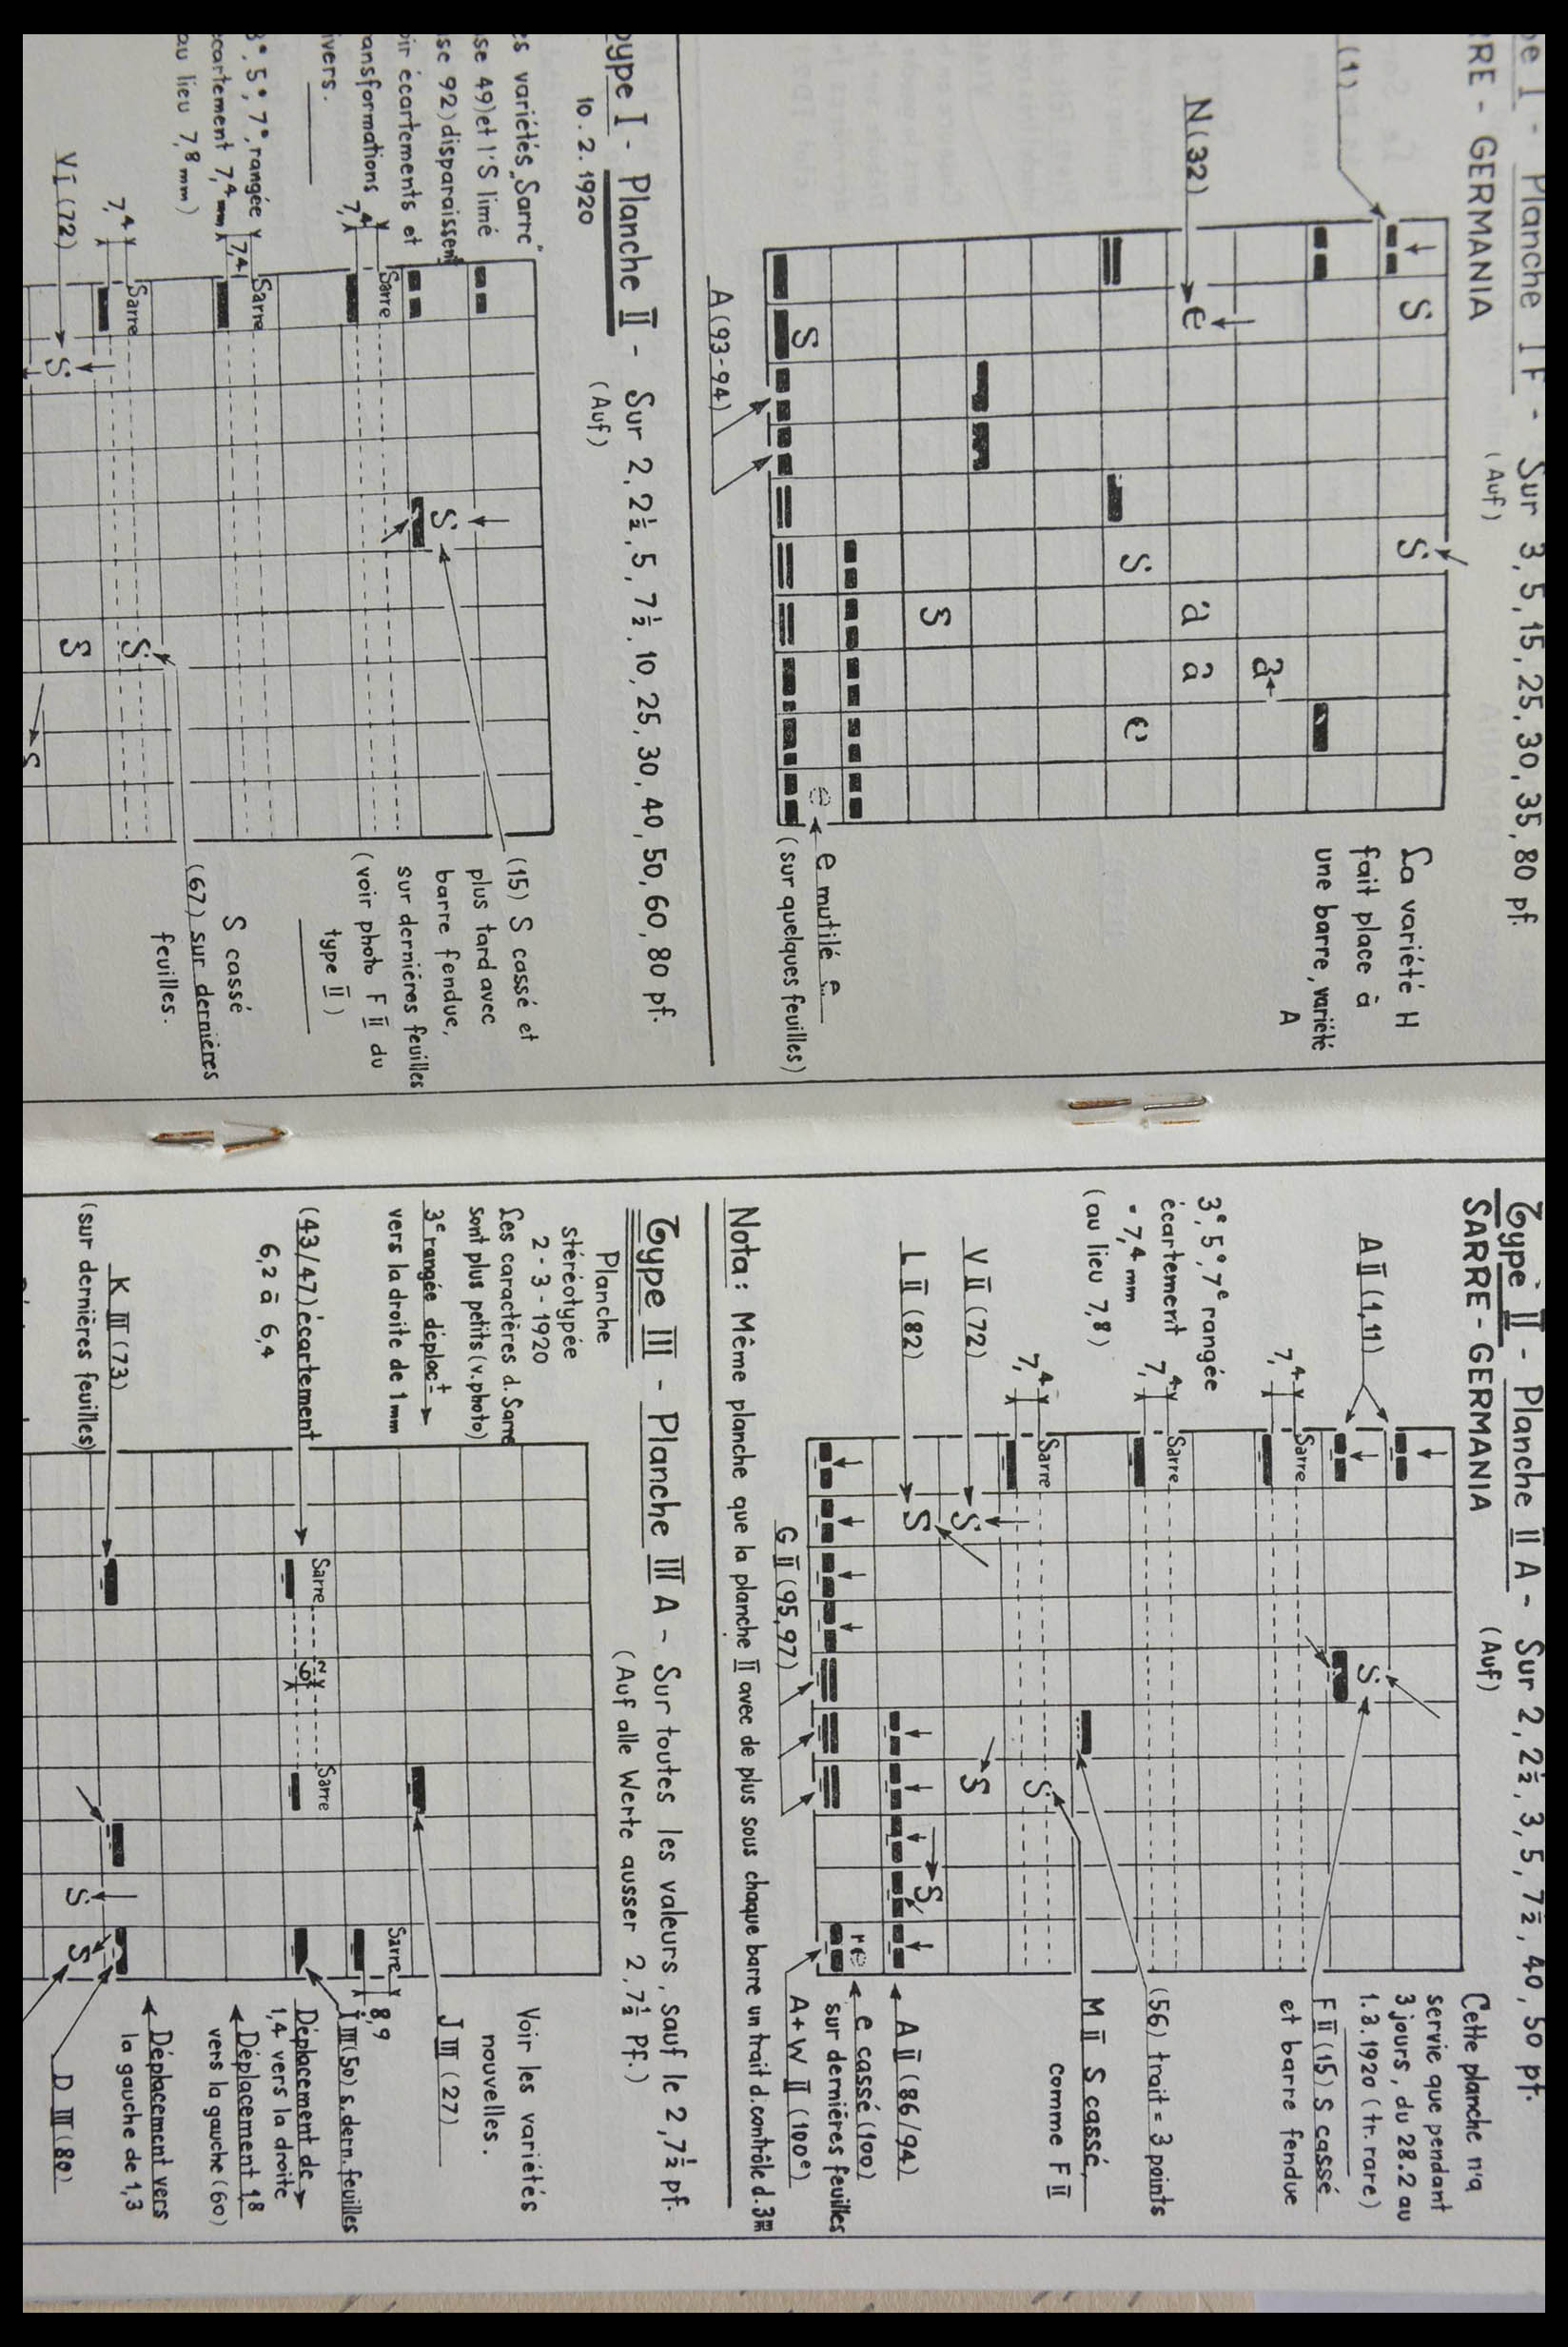 Planche I F - Sur 3, 5, 15, 25, 30, 35, 80 pf.
(Auf)
GERMANIA
(1)
N(32)
S
S
e
a
a
a
S
e
S
S
A(93-94)
e
La variété H
fait place à
une barre, variété
A
e mutilé e
(sur quelques feuilles)
Type I - Planche II - Sur 2, 2½, 5, 7½, 10, 25, 30, 40, 50, 60, 80 pf.
10. 2. 1920 (Auf)
variétés "Sarre"
49) et l'S limé
92) disparaissent
écartements et
transformations
3e, 5e, 7e, rangée
écartement 7,4 mm
au lieu 7,8 mm)
7,4
Sarre
7,4
Sarre
7,4
Sarre
VI (72)
S
S
S
S
S
(15) S cassé et
plus tard avec
barre fendue,
sur dernières feuilles
(voir photo F II du
type II)
S cassé
(67) sur dernières
feuilles.
Type II - Planche II A - Sur 2, 2½, 3, 5, 7½, 40, 50 pf.
SARRE - GERMANIA (Auf)
A II (1, 11)
7,4
Sarre
3e, 5e, 7e rangée
écartement
= 7,4 mm
(au lieu 7,8)
7,4
Sarre
7,4
Sarre
V II (72)
L II (82)
S
S
S
S
S
S
re
G II (95, 97)
Cette planche n'a
servie que pendant
3 jours, du 28.2 au
1.3.1920 (tr. rare)
F II (15) S cassé
et barre fendue
(56) trait = 3 points
M II S cassé,
comme F II
A II (86/94)
e cassé (100)
sur dernières feuilles
A+W II (100e)
Nota: Même planche que la planche II avec de plus sous chaque barre un trait d. contrôle d. 3m/m
Type III - Planche III A - Sur toutes les valeurs, sauf le 2, 7½ pf.
(Auf alle Werte ausser 2, 7½ Pf.)
Planche
stéréotypée
2 - 3 - 1920
Les caractères d. Sarre
sont plus petits (v. photo)
3e rangée déplact
vers la droite de 1 mm
(43/47) écartement
6,2 à 6,4
K III (73)
(sur dernières feuilles)
Sarre
Sarre
Sarre
8,9
S
S
Voir les variétés
nouvelles.
J III (27)
I III (50) s. dern. feuilles
Déplacement de
1,4 vers la droite
Déplacement 1,8
vers la gauche (60)
Déplacement vers
la gauche de 1,3
D III (80)